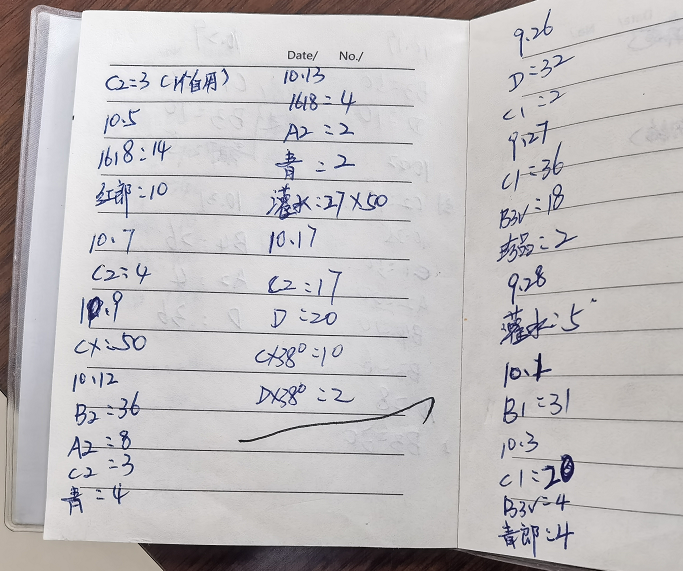 Date/ No./
C2=3（1件自用）
10.5
1618=14
红郎=10
10.7
C2=4
10.9
CX=50
10.12
B2=36
A2=8
C2=3
青=4
10.13
1618=4
A2=2
青=2
灌水=27×50
10.17
C2=17
D=20
CX38°=10
DX38°=2
9.26
D=32
C1=2
9.27
C1=36
B3V=18
珍品=2
9.28
灌水=5
10.1
B1=31
10.3
C1=20
B3V=4
青郎=4